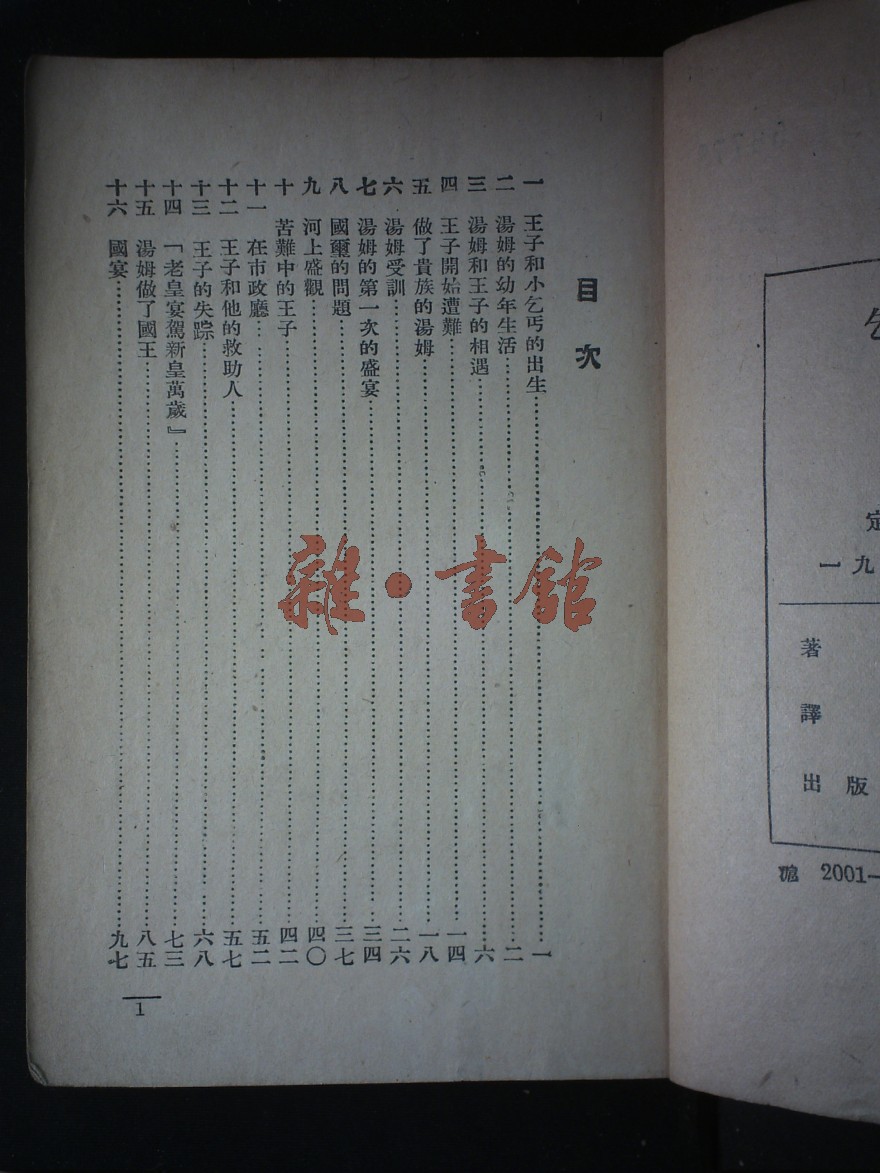 目次
一 王子和小乞丐的出生……一
二 湯姆的幼年生活……二
三 湯姆和王子的相遇……六
四 王子開始遭難……一四
五 做了貴族的湯姆……一八
六 湯姆受訓……二六
七 湯姆的第一次的盛宴……三四
八 國璽的問題……三七
九 河上盛觀……四〇
十 苦難中的王子……四二
十一 在市政廳……五二
十二 王子和他的救助人……五七
十三 王子的失踪……六八
十四 「老皇宴駕新皇萬歲』……七三
十五 湯姆做了國王……八五
十六 國宴……九七
1
雜·書館
定
一九
著
譯
出版
滬 2001—